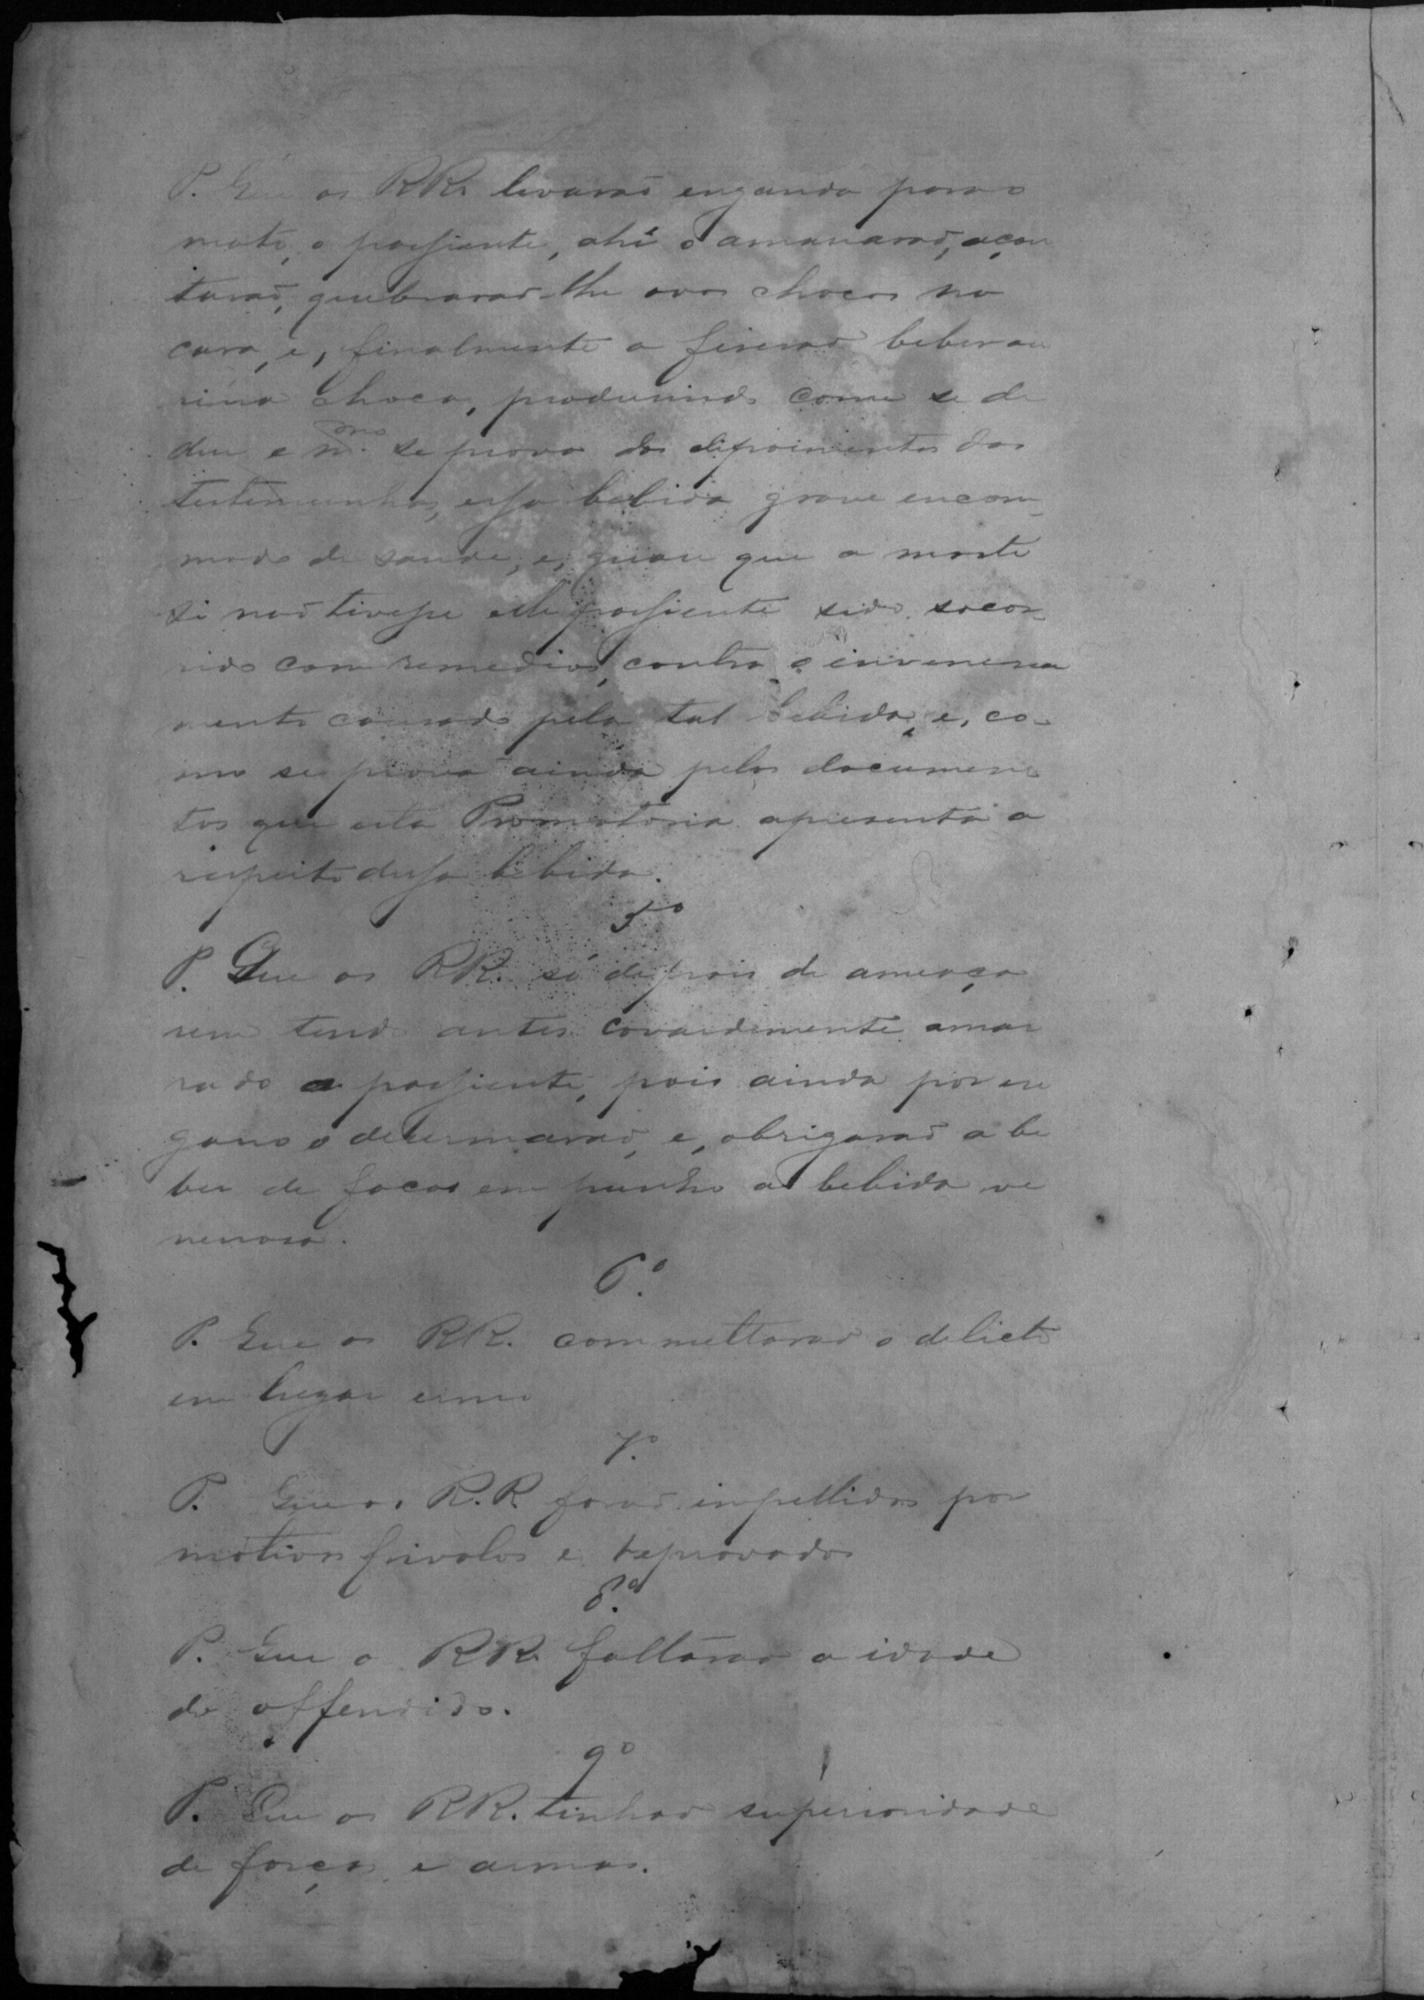 P. Que os RR. levaraõ enganado para o
mato, o passiente, ahi o amararaõ, açou
taraõ, quebraraõ-lhe ovos chocos na
cara, e, finalmente o fiseraõ beber ou
rina choca, produsindo como se de
duz e m.mo se prova dos dipoimentos das
testemunhas, essa bebida grave encom-
modo de saude, e, quasi que a morte
si naõ tivesse elle passiente sido socor-
rido com remedios, contra o invenena
mento causado pela tal bebida, e, co-
mo se prova ainda pelos documen
tos que esta Promotoria apresenta a
respeito dessa bebida.
5º
P. Que os RR. só depois de ameaça
rem tendo antes covardemente amar
rado o passiente, pois ainda por en
gano o desarmaraõ, e, obrigaraõ a be
ber de facas em punho a bebida ve
nenosa.
6.º
P. Que os RR. commettaraõ o delicto
em lugar ermo
7.º
P. Que os R.R foraõ impellidos por
motivos frivolos e reprovados
8.º
P. Que o RR. faltaraõ a idade
do offendido.
9º
P. Que os RR. tinhaõ superioridade
de forças e armas.